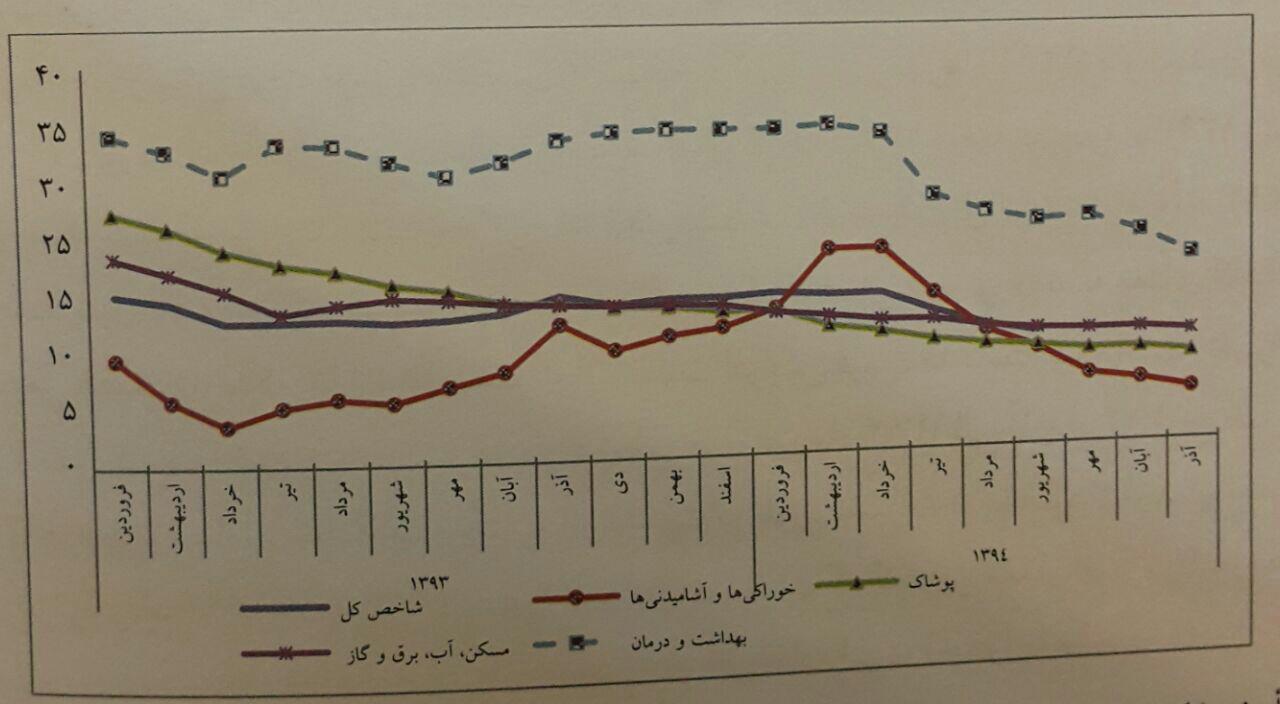 ۴۰
۳۵
۳۰
۲۵
۱۵
۱۰
۵
۰
فروردین
اردیبهشت
خرداد
تیر
مرداد
شهریور
مهر
آبان
آذر
دی
بهمن
اسفند
فروردین
اردیبهشت
خرداد
تیر
مرداد
شهریور
مهر
آبان
آذر
۱۳۹۳
۱۳۹٤
پوشاک
خوراکی‌ها و آشامیدنی‌ها
شاخص کل
بهداشت و درمان
مسکن، آب، برق و گاز